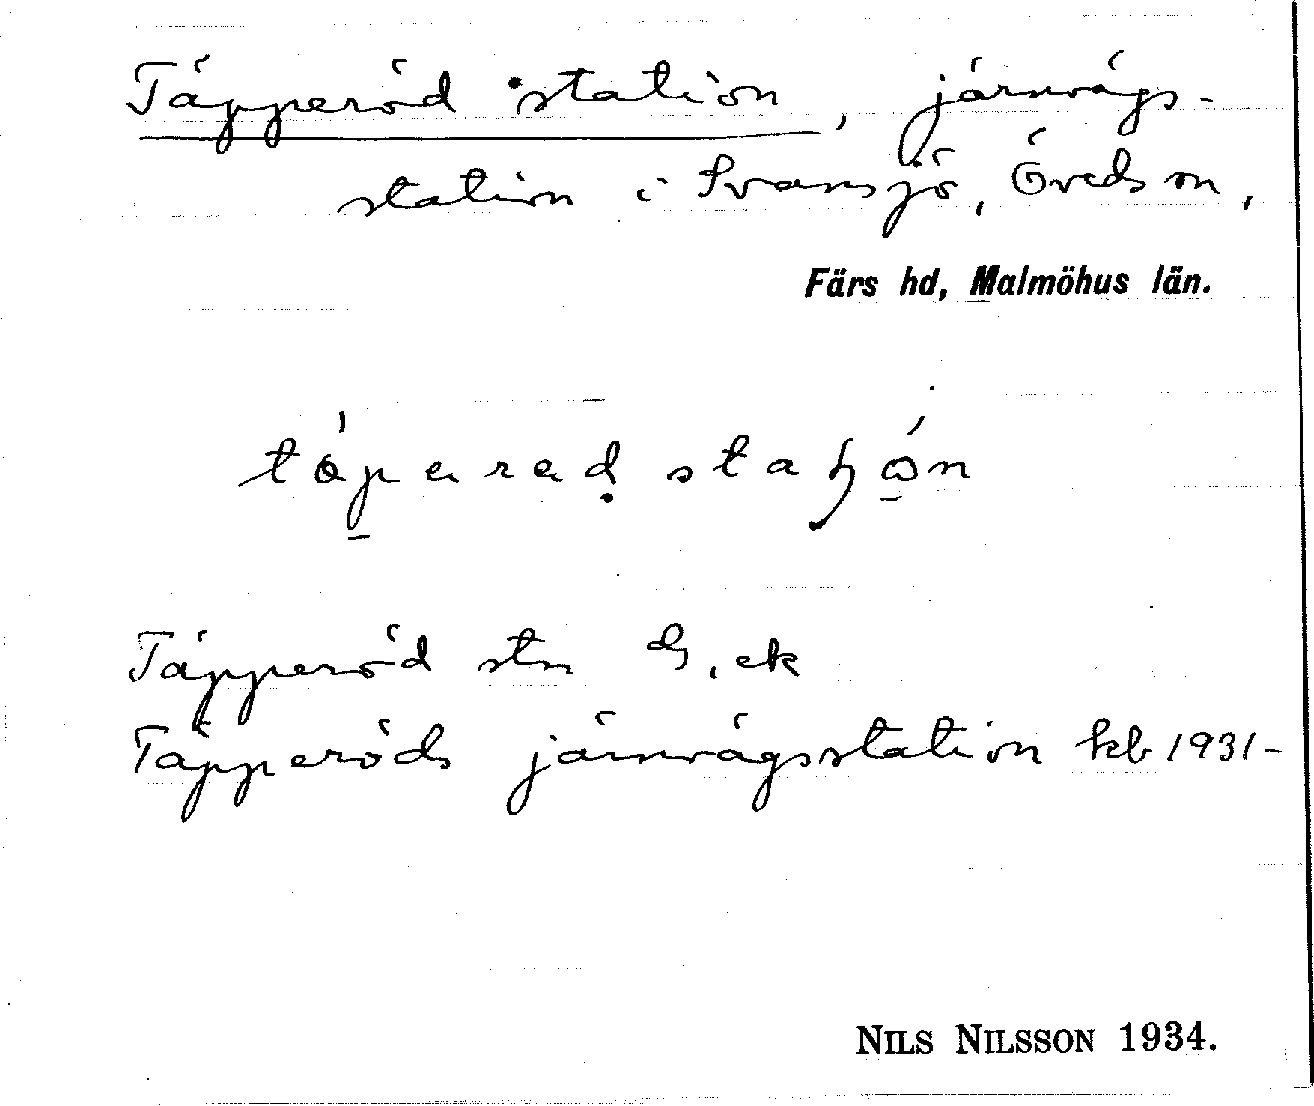 Täpperöd station, järnvägs-
station i Svansjö, Öveds sn,
Färs hd, Malmöhus län.
Täpperöd stn G, ek
Täpperöds järnvägsstation kb 1931-
NILS NILSSON 1934.